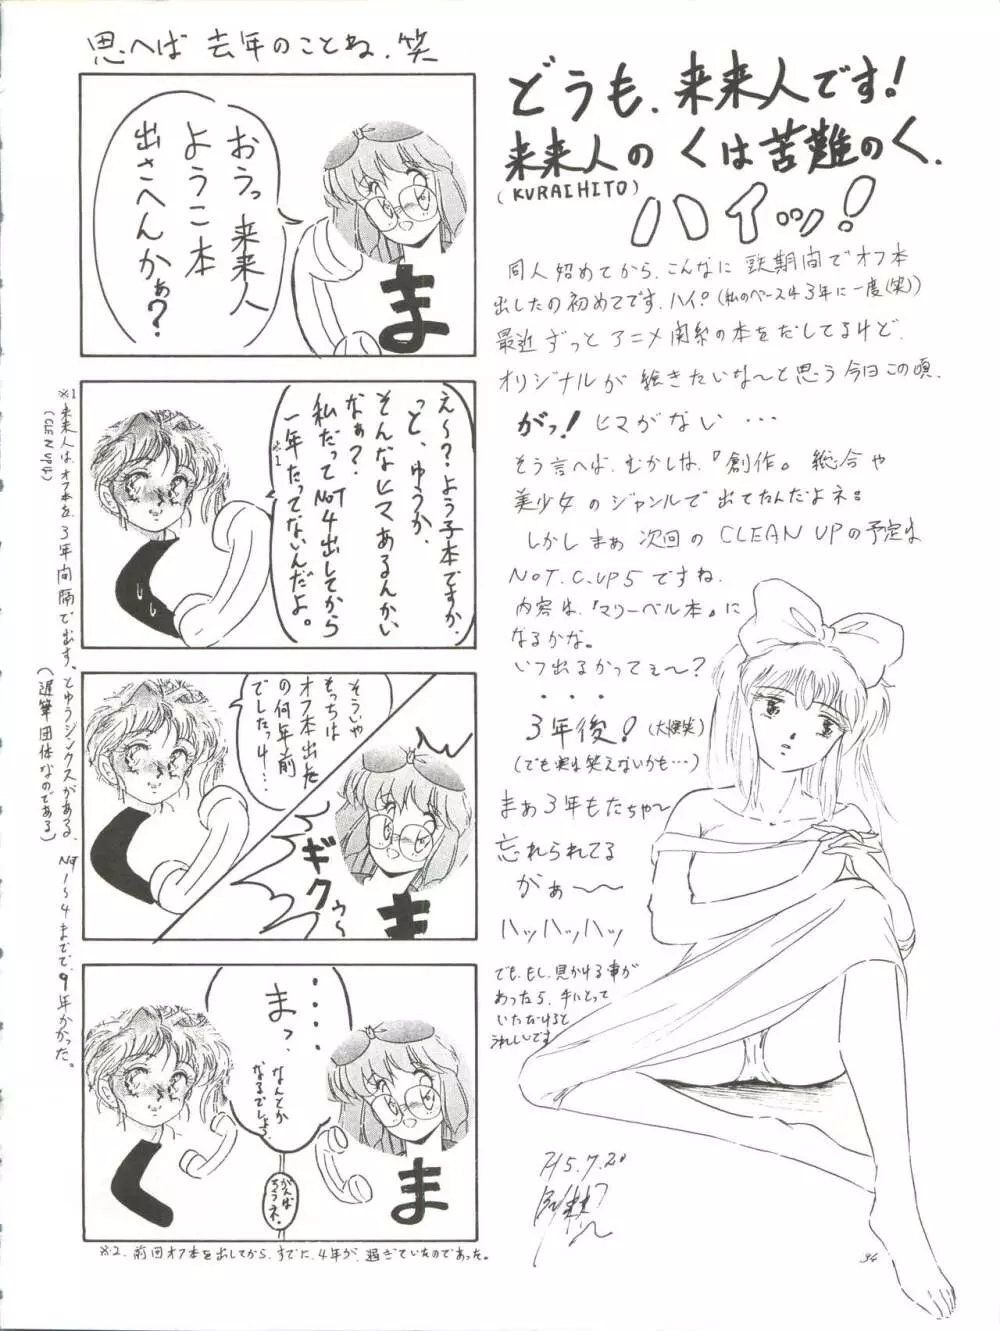 思へば 去年のことね.笑
おうっ 来来人
ようこ本
出さへんかぁ?
ま
え〜?よう子本ですか.
っと、ゆうか、
そんなヒマあるんかい
なぁ?
私だってNOT4出してから
一年たってないんだよ。
※1
※1 来来人は、オフ本を、3年間隔で出す、とゆうジンクスがある。NOT1〜4までで、9年かかった。
(CLEN UPは)
(遅筆団体なのである)
そういや
そっちは
オフ本出した
の何年前
でしたっけ…
ギクゥ〜
ま
・・・・
まっ、
なんとか
なるでしょ。
がんば
ろうネ。
ま
※2. 前回オフ本を出してから、すでに、4年が、過ぎていたのであった。
どうも、来来人です!
来来人の くは苦難のく.
(KURAIHITO)
ハイッ!
同人始めてから、こんなに 短期間でオフ本
出したの初めてです.ハイ。(私のペースは3年に一度(笑))
最近 ずっと アニメ関系の本をだしてるけど、
オリジナルが 絵きたいな〜と思う今日この頃.
がっ! ヒマがない ・・・
そう言へば、むかしは、『創作。 総合や
美少女 の ジャンルで 出てたんだよネ。
しかし まぁ 次回の CLEAN UPの予定は
NOT.C.UP5ですね.
内容は、『マリーベル本。』に
なるかな。
いつ出るかってぇ〜?
・・・・
3年後!(大爆笑)
(でも実は笑えないかも…)
まぁ3年もたちゃ〜
忘れられてる
がぁ〜〜
ハッハッハッ
でも、もし、見かける事が
あったら、手にとって
いただけると
うれしいです
'95.7.20
34